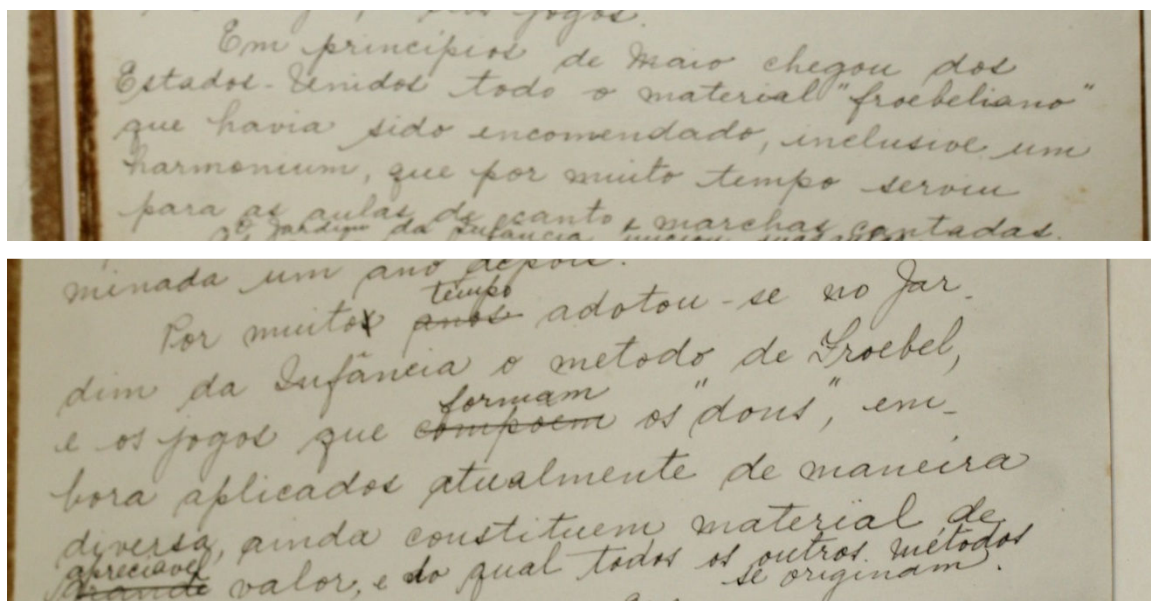 jogos.
Em princípios de Maio chegou dos
Estados-Unidos todo o material "froebeliano"
que havia sido encomendado, inclusive um
harmonium, que por muito tempo serviu
para as aulas de canto e marchas cantadas.
O Jardim da Infância
minada um ano depois.
tempo
Por muitos anos adotou-se no Jar-
dim da Infância o metodo de Froebel,
formam
e os jogos que compoem os "dons", em-
bora aplicados atualmente de maneira
diversa, ainda constituem material de
apreciavel
grande valor, e do qual todos os outros métodos
se originam.